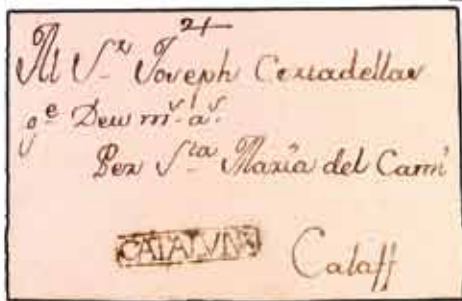 21
Al Sor Joseph Cerradellas
ge Deu ms. as.
Per Sta Maria del Carmi
CATALUÑA Calaff